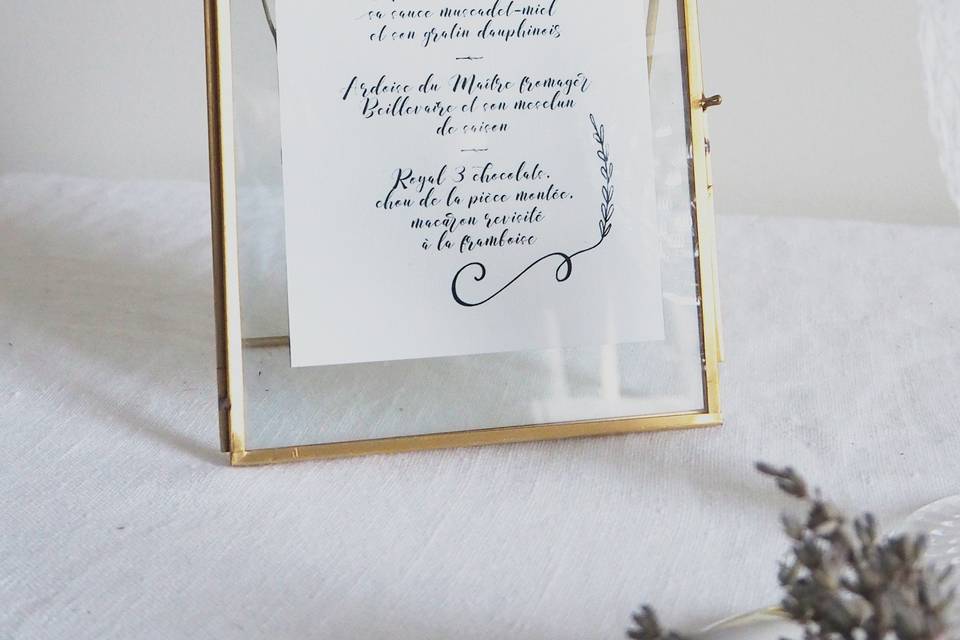 sa sauce muscadet-miel
et son gratin dauphinois
Ardoise du Maître fromager
Beillevaire et son mesclun
de saison
Royal 3 chocolats,
chou de la pièce montée,
macaron revisité
à la framboise